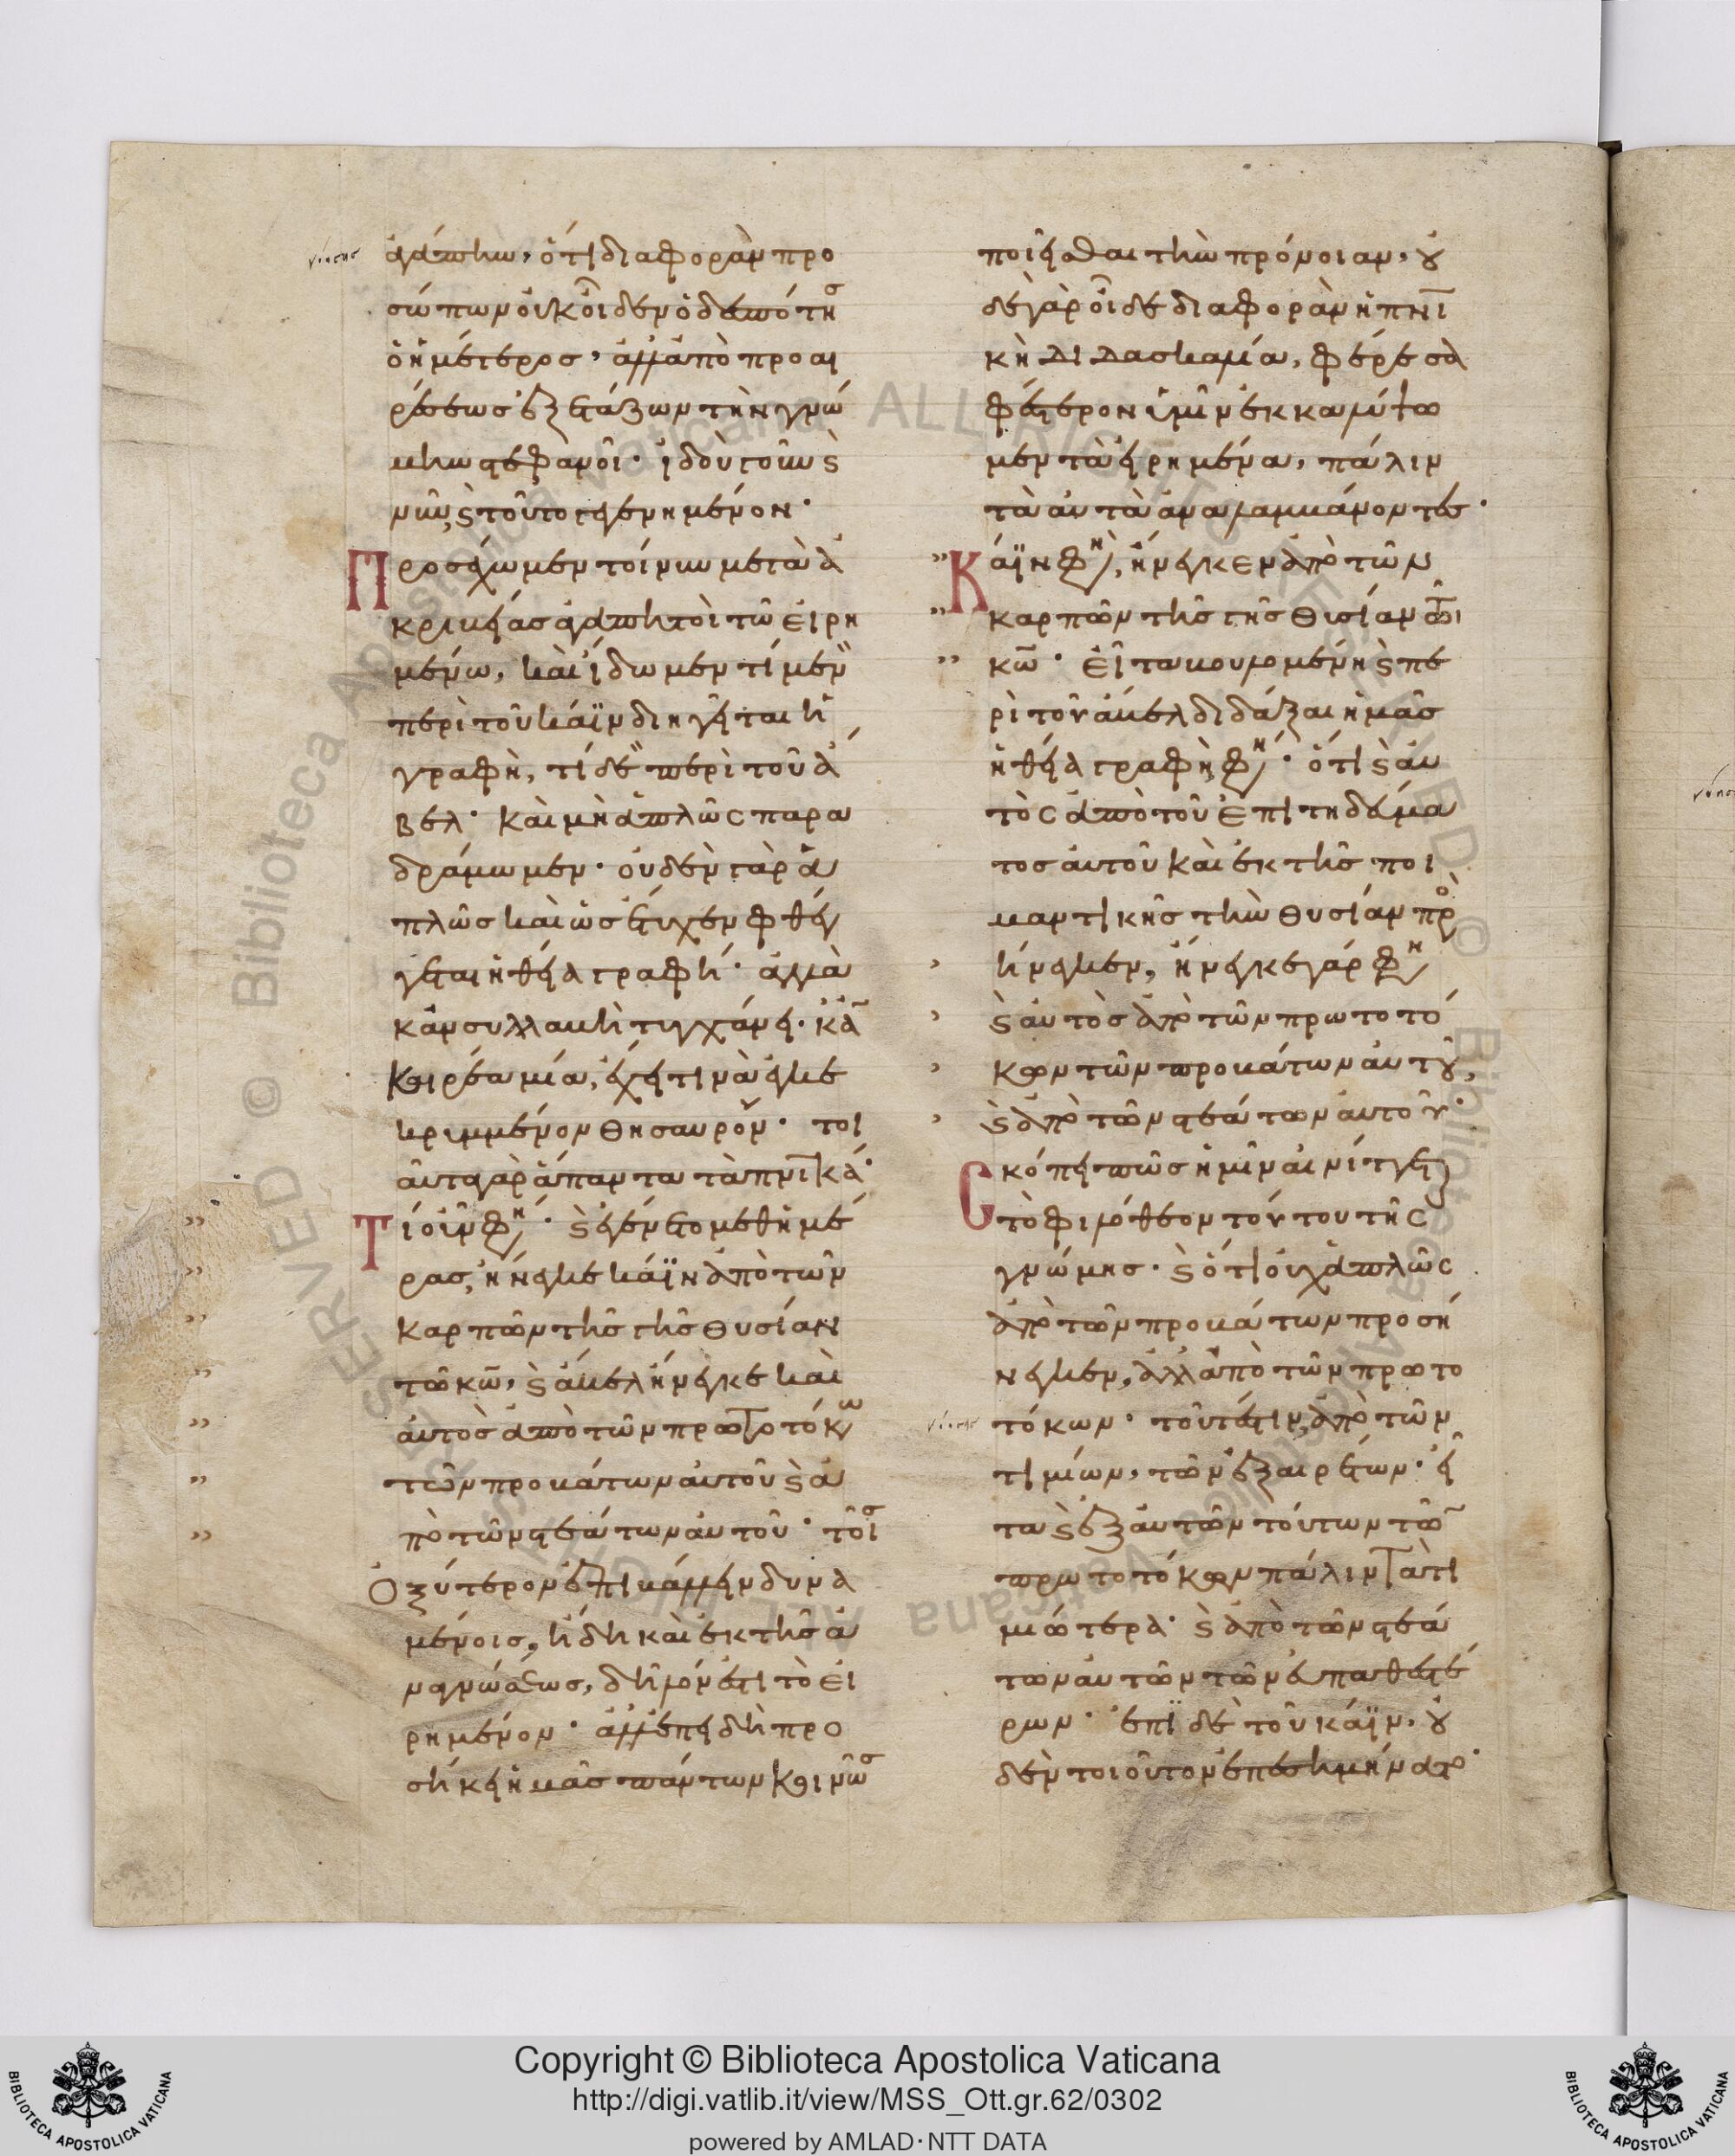 ἀγάπην, ὅτι διαφορὰν προ
σώπων οὐκ οἶδεν ὁ δεσπότησ
ὁ ἡμέτεροσ, ἀλλ' ἀπὸ προαι
ρέσεωσ ἐξετάζων τὴν γνώ
μην στεφανοῖ· ἰδοὺ τοίνυν καὶ
νῦν καὶ τοῦτο γεγενημένον·
Προσχῶμεν τοίνυν μετὰ ἀ
κριβείασ ἀγαπητοὶ τῶ εἰρη
μένω, καὶ ἴδωμεν τί μὲν
περὶ τοῦ κάϊν διηγεῖται ἡ
γραφὴ, τί δὲ περὶ τοῦ ἄ
βελ· καὶ μὴ ἁπλῶς παρα
δράμωμεν· οὐδὲν γὰρ ἁ
πλῶσ καὶ ὡσ ἔτυχεν φθέγ
γεται ἡ θεία γραφή· ἀλλὰ
κἂν συλλαβὴ τυγχάνει· κἂ
κεραία μία, ἔχει τινὰ ἐγκε
κρυμμένον θησαυρόν· τοι
αῦτα γὰρ ἅπαντα τὰ πνικά·
Τί οὖν φη· καὶ ἐγένετο μεθ' ἡμέ
ρασ, ἤνεγκε κάϊν ἀπὸ τῶν
καρπῶν τῆσ γῆσ θυσίαν
τῶ κω, καὶ ἄβελ ἤνεγκε καὶ
αὐτὸσ ἀπὸ τῶν πρωτοτόκω
τῶν προβάτων αὐτοῦ καὶ ἀ
πὸ τῶν στεάτων αὐτοῦ· τοῖσ
ὀξύτερον ἐπιβάλλειν δυνα
μένοισ, ἤδη καὶ ἐκ τῆσ ἀ
ναγνώσεωσ, δῆλόν ἐστι τὸ εἰ
ρημένον· ἀλλ' ἐπειδὴ προ
σήκει ἡμᾶσ πάντων κοινῶσ
ποιεῖσθαι τὴν πρόνοιαν, οὐ
δὲ γὰρ οἶδε διαφορὰν ἡ πνι
κὴ διδασκαλία, φέρε σα
φέστερον ὑμῖν ἐκκαλύψω
μεν τὰ εἰρημένα, πάλιν
τὰ αὐτὰ ἀναλαμβάνοντεσ·
Κάϊν φη, ἤνεγκεν ἀπὸ τῶν
καρπῶν τῆσ γῆσ θυσίαν τῶ
κω· εἶτα βουλομένη καὶ πε
ρὶ τοῦ ἄβελ διδάξαι ἡμᾶσ
ἡ θεία γραφὴ φη· ὅτι καὶ αὐ
τὸς ἀπὸ τοῦ ἐπιτηδεύμα
τοσ αὐτοῦ καὶ ἐκ τῆσ ποι
μαντικῆσ τὴν θυσίαν προσ
ήνεγκεν, ἤνεγκε γάρ φη
καὶ αὐτὸσ ἀπὸ τῶν πρωτοτό
κων τῶν προβάτων αὐτοῦ,
καὶ ἀπὸ τῶν στεάτων αὐτοῦ·
Σκόπει πῶσ ἡμῖν αἰνίττεται
τὸ φιλόθεον τούτου τῆς
γνώμησ· καὶ ὅτι οὐχ ἁπλῶς
ἀπὸ τῶν προβάτων προσή
νεγκεν, ἀλλ' ἀπὸ τῶν πρωτο
τόκων· τουτέστιν, ἀπὸ τῶν
τιμίων, τῶν ἐξαιρέτων· εἶ
τα καὶ ἐξ αὐτῶν τούτων τῶν
πρωτοτόκων πάλιν τὰ τι
μιώτερα· καὶ ἀπὸ τῶν στεά
των αὐτῶν τῶν
ρων· ἐπὶ δὲ τοῦ κάϊν, οὐ
δὲν τοιοῦτον ἐπεσημήνατο·